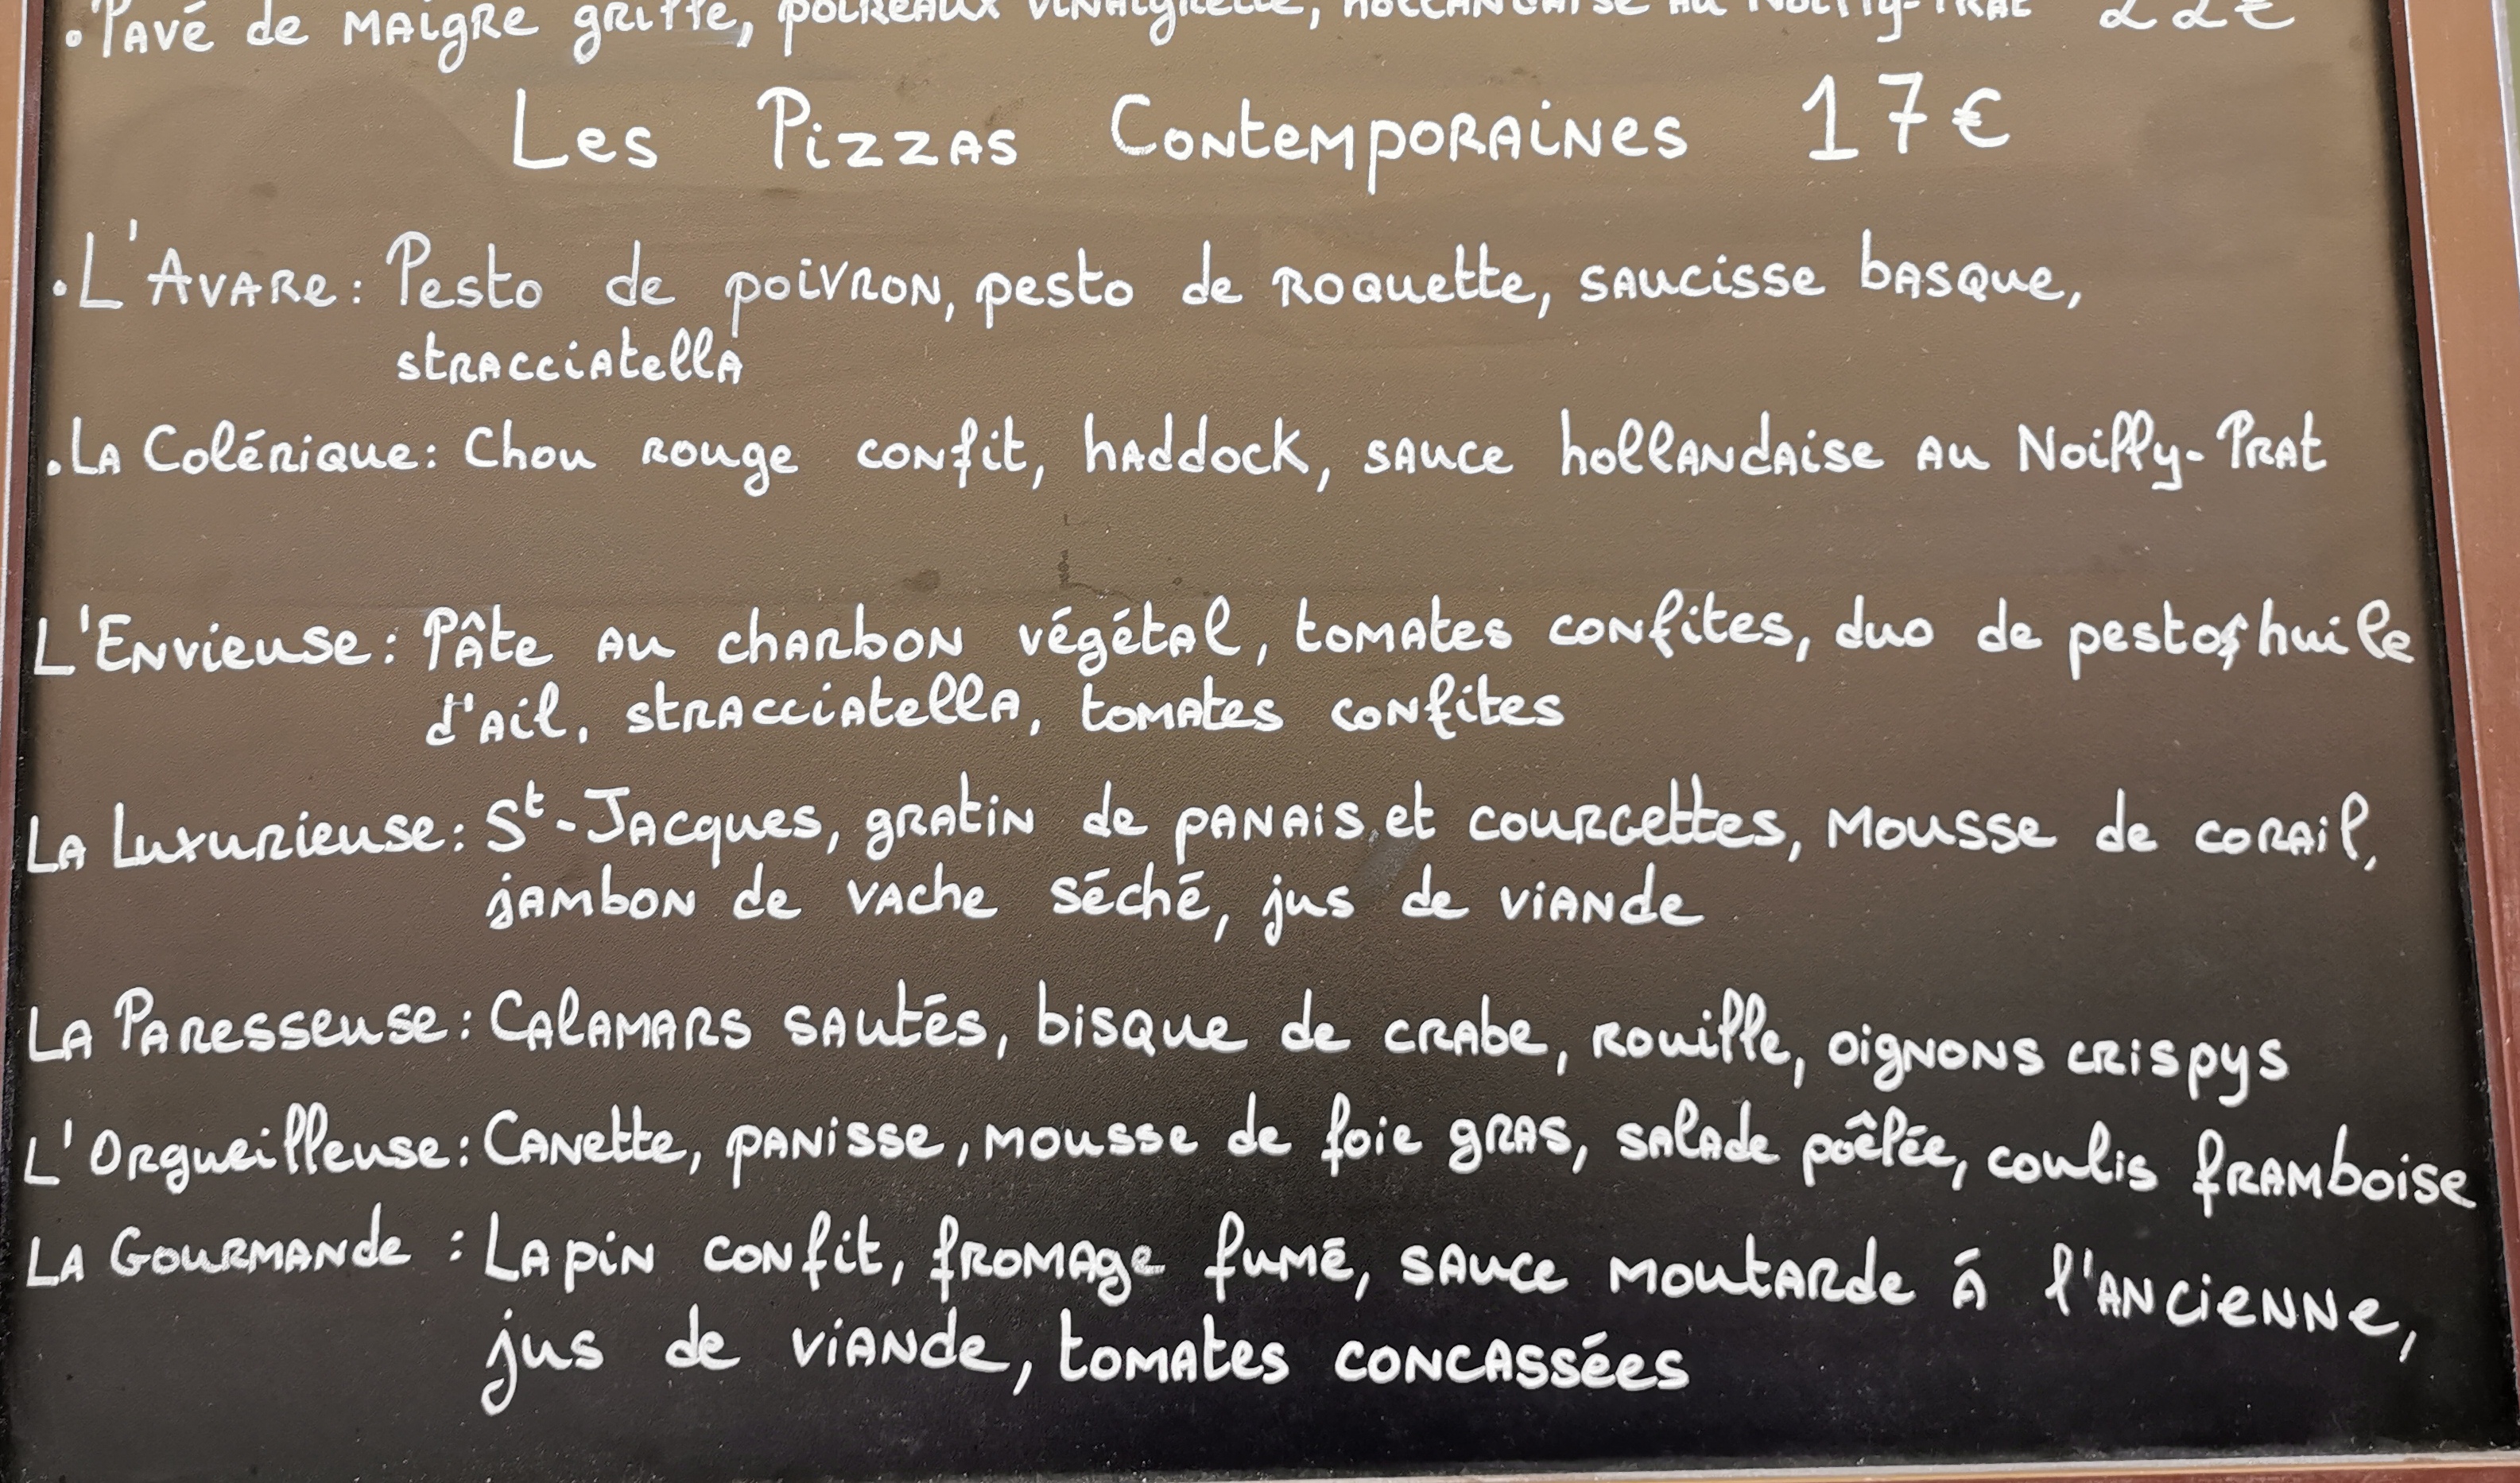 •Pavé de maigre grillé, poireaux vinaigrette, hollandaise au Noilly-Prat 22€
Les Pizzas Contemporaines 17€
•L'Avare: Pesto de poivron, pesto de roquette, saucisse basque,
stracciatella
•La Colérique: Chou rouge confit, haddock, sauce hollandaise au Noilly-Prat
L'Envieuse: Pâte au charbon végétal, tomates confites, duo de pestos, huile
d'ail, stracciatella, tomates confites
La Luxurieuse: St-Jacques, gratin de panais et courgettes, mousse de corail,
jambon de vache séché, jus de viande
La Paresseuse: Calamars sautés, bisque de crabe, rouille, oignons crispys
L'Orgueilleuse: Canette, panisse, mousse de foie gras, salade poêlée, coulis framboise
La Gourmande : Lapin confit, fromage fumé, sauce moutarde á l'ancienne,
jus de viande, tomates concassées